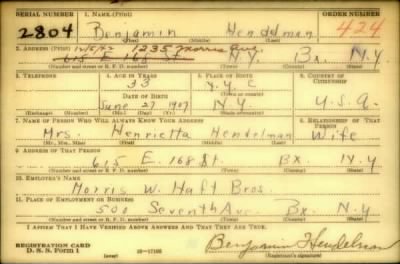 SERIAL NUMBER 1. NAME (Print) ORDER NUMBER
2804 Benjamin Hendelman 424
(First) (Middle) (Last)
2. ADDRESS (Print) 12/5/42 1235 Morris Ave.
615 E. 168 St. N.Y. Bx. N.Y.
(Number and street or R. F. D. number) (Town) (County) (State)
3. TELEPHONE 4. AGE IN YEARS 5. PLACE OF BIRTH 6. COUNTRY OF CITIZENSHIP
33 N.Y.
DATE OF BIRTH (Town or county)
June 27 1907 N.Y. U.S.A.
(Exchange) (Number) (Mo.) (Day) (Yr.) (State or country)
7. NAME OF PERSON WHO WILL ALWAYS KNOW YOUR ADDRESS 8. RELATIONSHIP OF THAT PERSON
Mrs. Henrietta Hendelman Wife
(Mr., Mrs., Miss) (First) (Middle) (Last)
9. ADDRESS OF THAT PERSON
615 E. 168 St. Bx. N.Y
(Number and street or R. F. D. number) (Town) (County) (State)
10. EMPLOYER'S NAME
Morris W. Haft Bros.
11. PLACE OF EMPLOYMENT OR BUSINESS
500 Seventh Ave. Bx. N.Y
(Number and street or R. F. D. number) (Town) (County) (State)
I AFFIRM THAT I HAVE VERIFIED ABOVE ANSWERS AND THAT THEY ARE TRUE.
REGISTRATION CARD
D. S. S. Form 1 Benjamin Hendelman
(Registrant's signature)